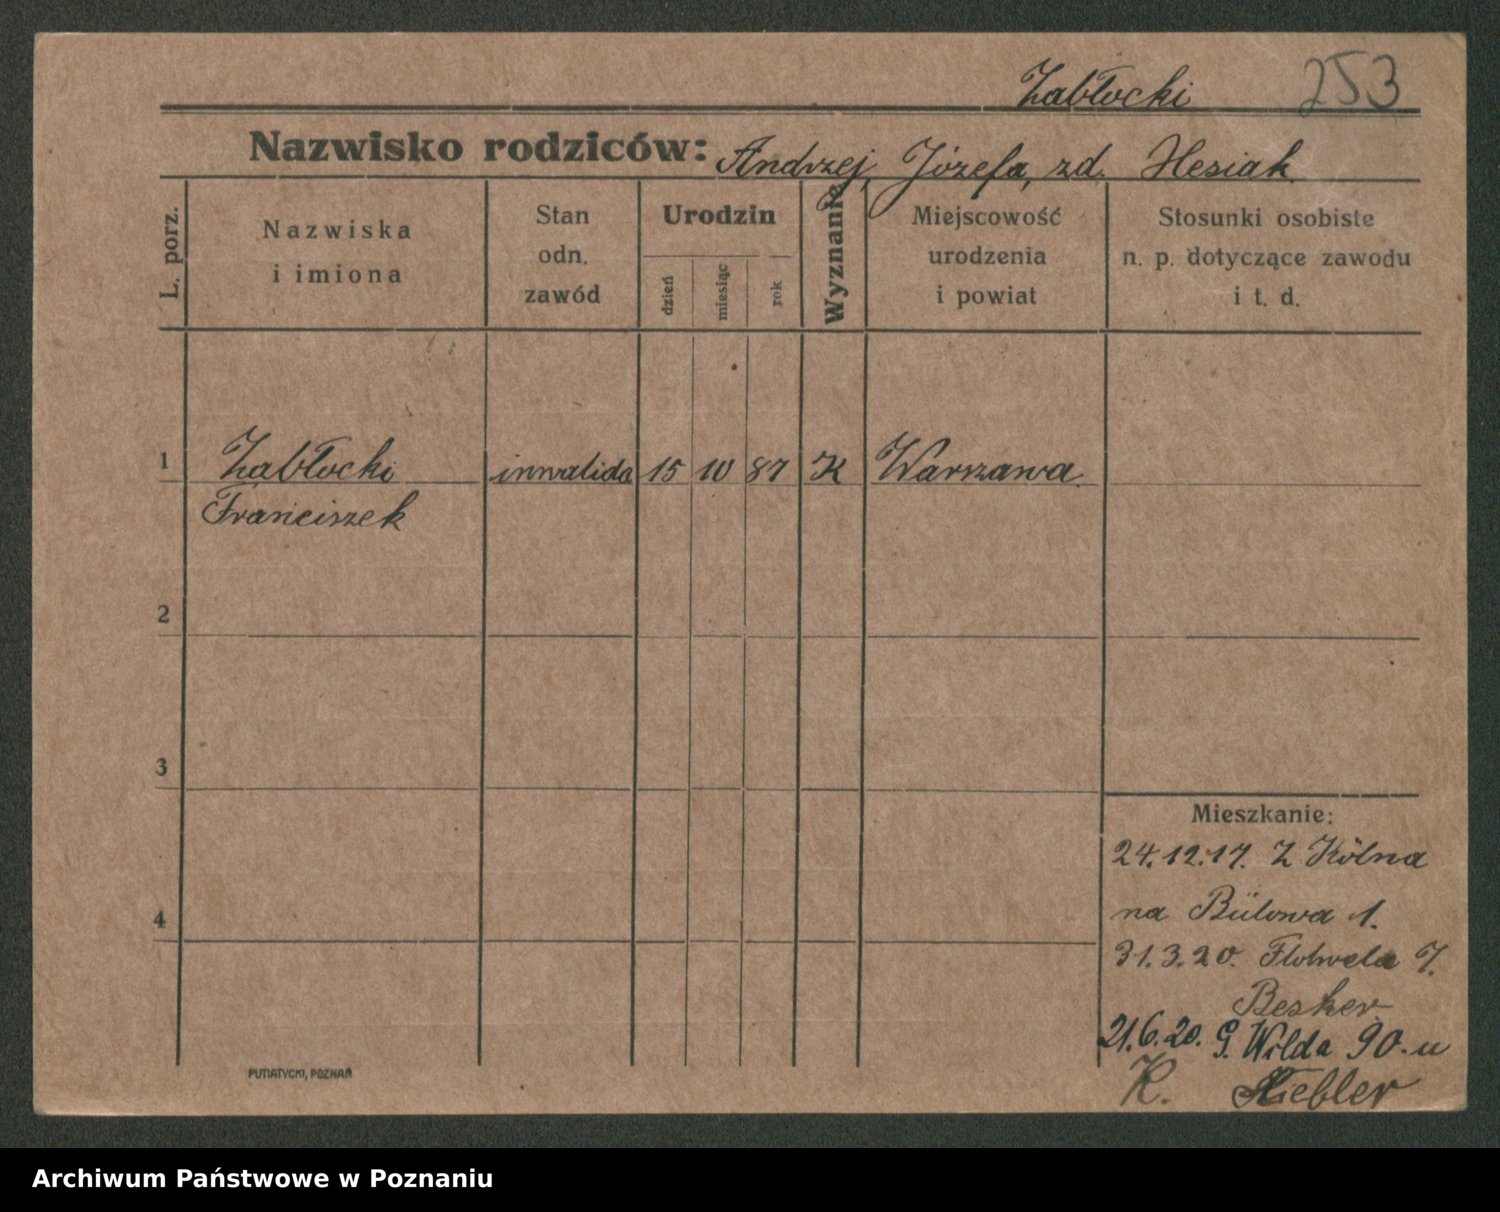 Zabłocki 253
Nazwisko rodziców: Andrzej, Józefa, zd. Hesiak
L. porz.
Nazwiska
i imiona
Stan
odn.
zawód
Urodzin
dzień
miesiąc
rok
Wyznanie
Miejscowość
urodzenia
i powiat
Stosunki osobiste
n. p. dotyczące zawodu
i t. d.
1 Zabłocki inwalida 15 10 87 K Warszawa.
Franciszek
2
3
Mieszkanie:
24.12.17. Z Kölna
na Bülowa 1.
4
31.3.20. Flotwela 7.
Besker
21.6.20. G. Wilda 90. u
K. Stiebler
PUTIATYCKI, POZNAŃ
Archiwum Państwowe w Poznaniu